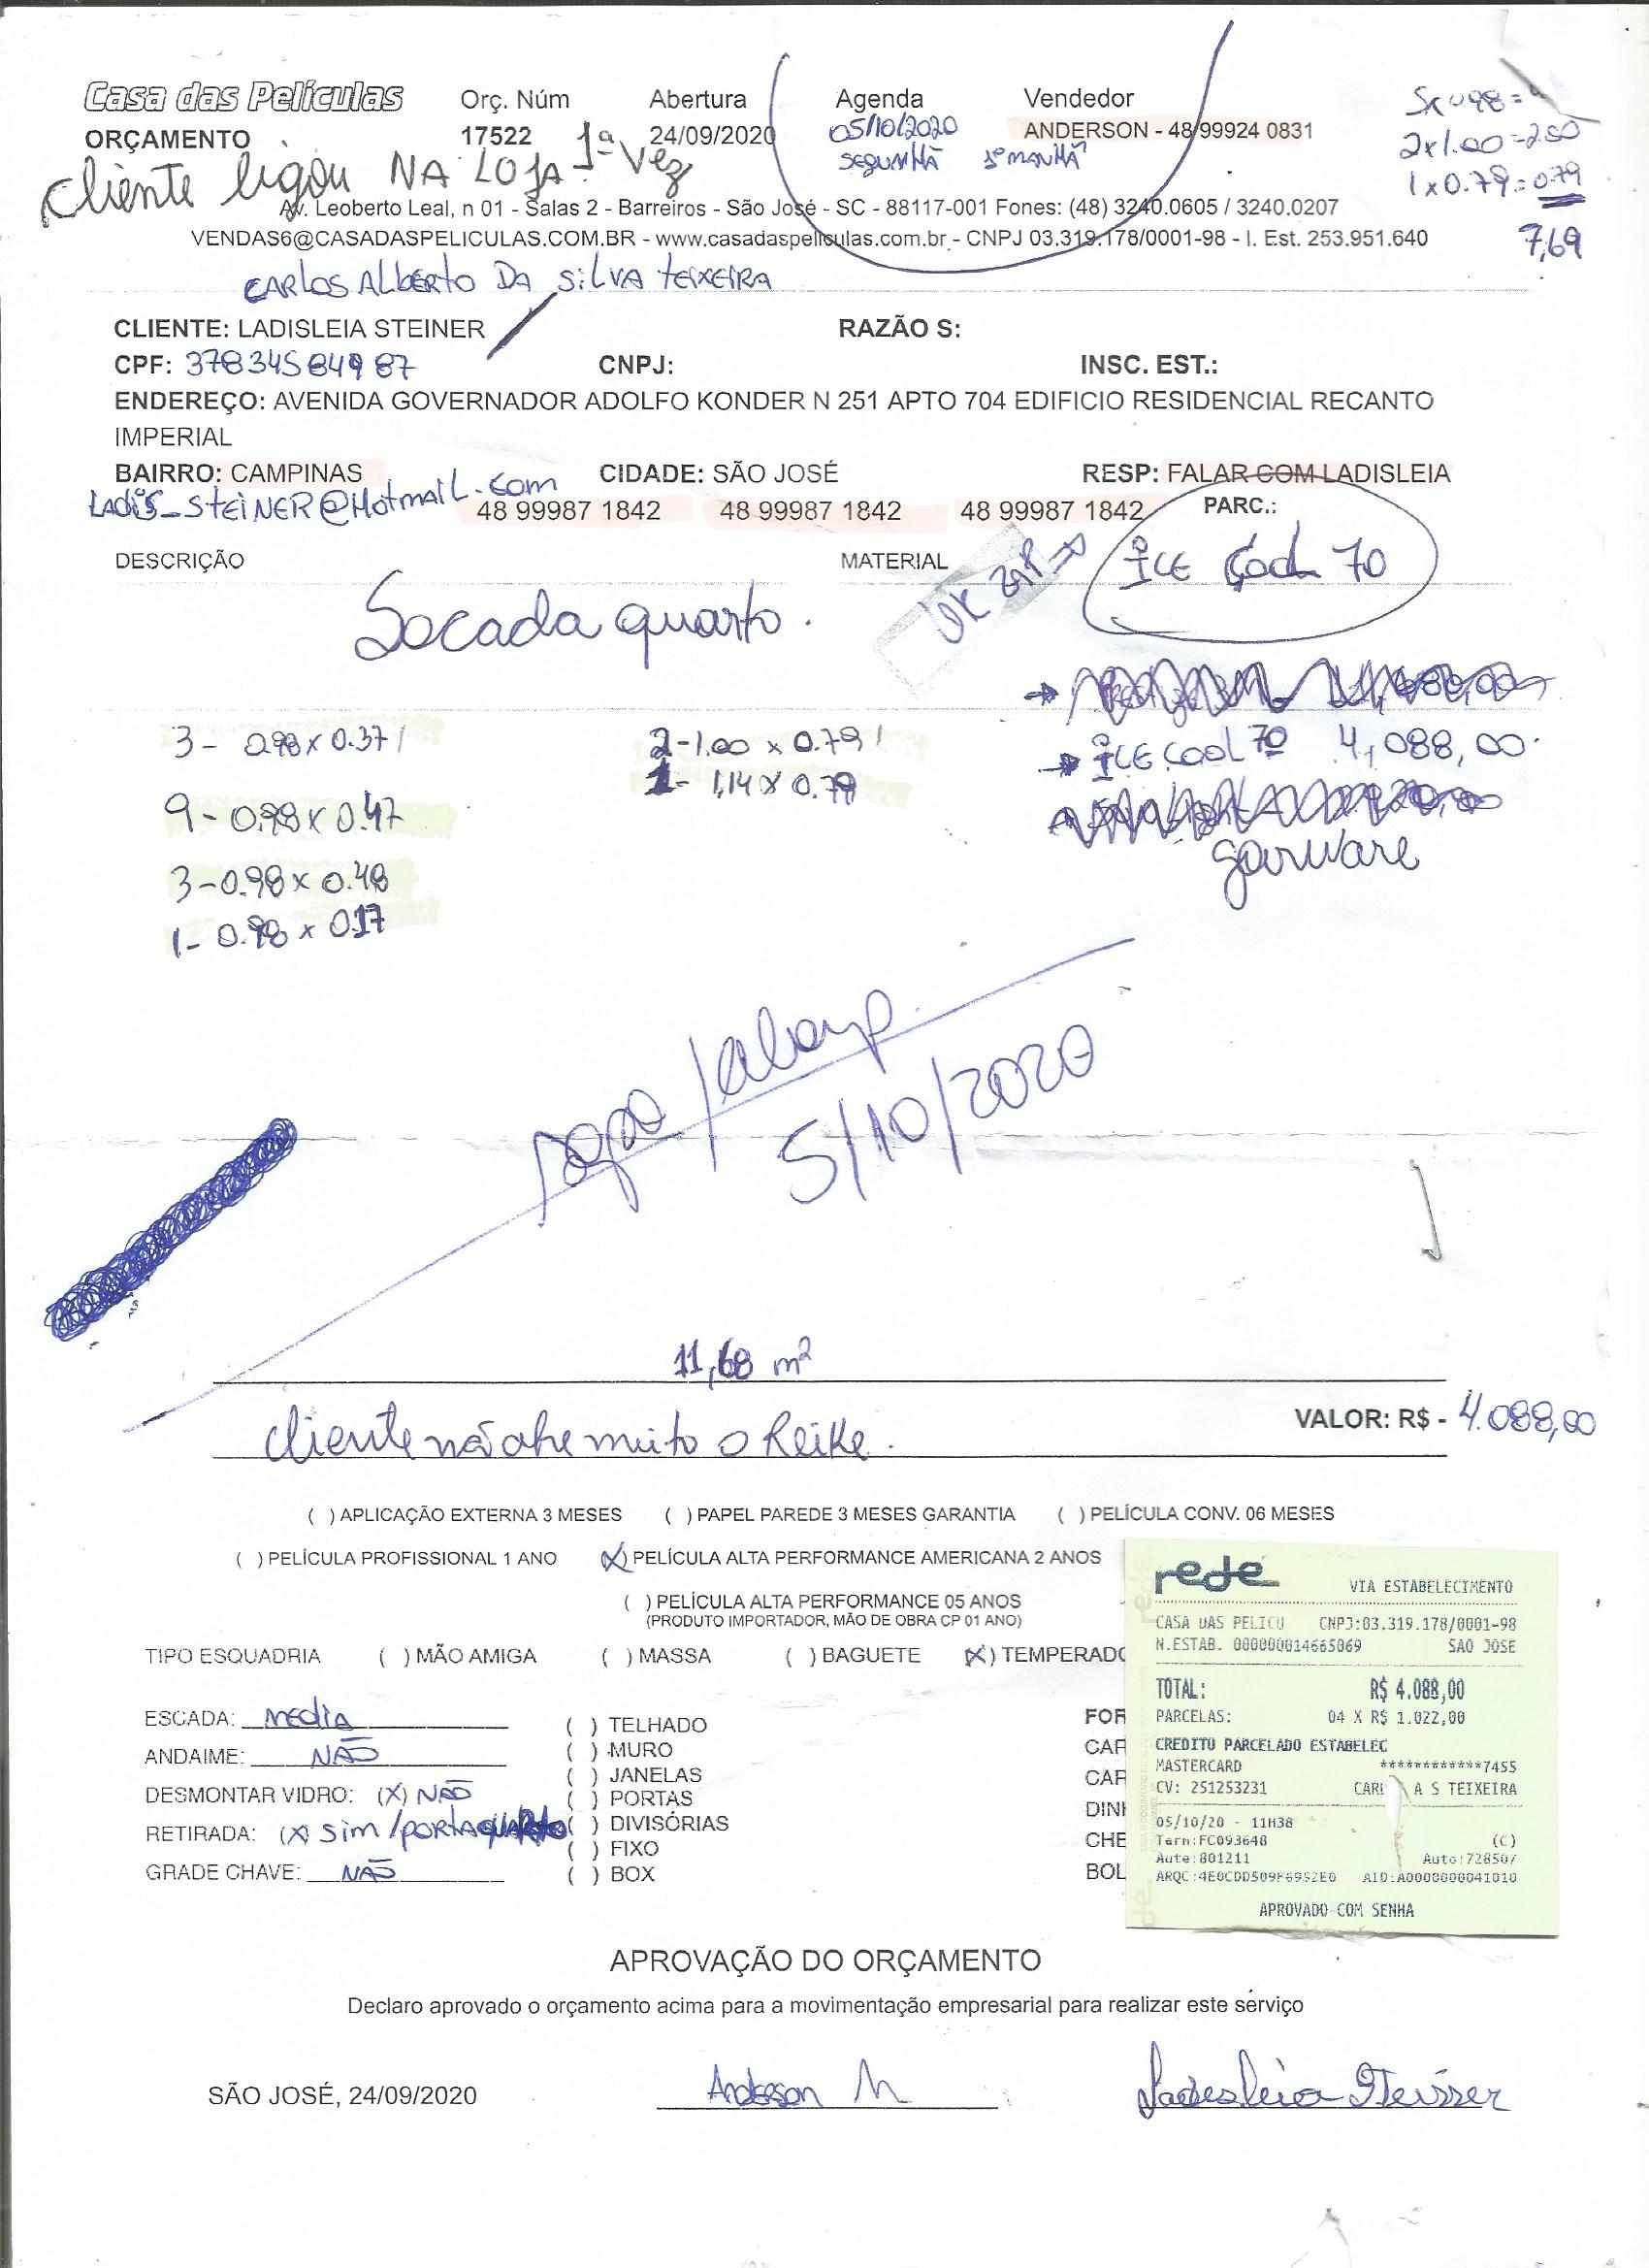 Casa das Películas Orç. Núm Abertura Agenda Vendedor
ORÇAMENTO 17522 24/09/2020 05/10/2020 ANDERSON - 48 99924 0831
2x1.00=2.00
1x0.79=0.79
7,69
cliente ligou NA LOJA 1ª vez
Av. Leoberto Leal, n 01 - Salas 2 - Barreiros - São José - SC - 88117-001 Fones: (48) 3240.0605 / 3240.0207
VENDAS6@CASADASPELICULAS.COM.BR - www.casadaspeliculas.com.br - CNPJ 03.319.178/0001-98 - I. Est. 253.951.640
CARLOS ALBERTO DA SILVA TEIXEIRA
CLIENTE: LADISLEIA STEINER RAZÃO S:
CPF: 37834584987 CNPJ: INSC. EST.:
ENDEREÇO: AVENIDA GOVERNADOR ADOLFO KONDER N 251 APTO 704 EDIFICIO RESIDENCIAL RECANTO
IMPERIAL
BAIRRO: CAMPINAS CIDADE: SÃO JOSÉ RESP: FALAR COM LADISLEIA
LADIS_STEINER@Hotmail.com 48 99987 1842 48 99987 1842 48 99987 1842 PARC.:
DESCRIÇÃO MATERIAL OK ZAP ICE Cool 70
Sacada quarto.
3 - 0.98 x 0.37 2 - 1.00 x 0.79 ICE COOL 70 4,088,00
1 - 1,14 x 0.79
9 - 0.98 x 0.47
garware
3 - 0.98 x 0.48
1 - 0.98 x 0.17
5/10/2020
11,68 m²
VALOR: R$ - 4.088,00
( ) APLICAÇÃO EXTERNA 3 MESES ( ) PAPEL PAREDE 3 MESES GARANTIA ( ) PELÍCULA CONV. 06 MESES
( ) PELÍCULA PROFISSIONAL 1 ANO (X) PELÍCULA ALTA PERFORMANCE AMERICANA 2 ANOS
( ) PELÍCULA ALTA PERFORMANCE 05 ANOS
(PRODUTO IMPORTADOR, MÃO DE OBRA CP 01 ANO)
TIPO ESQUADRIA ( ) MÃO AMIGA ( ) MASSA ( ) BAGUETE (X) TEMPERADO
ESCADA: MEDIA ( ) TELHADO FOR
ANDAIME: NÃO ( ) MURO CAR
( ) JANELAS CAR
DESMONTAR VIDRO: (X) NÃO ( ) PORTAS DINH
RETIRADA: (X) sim / PORTA QUARTO ( ) DIVISÓRIAS CHE
( ) FIXO
GRADE CHAVE: NÃO ( ) BOX BOL
rede VIA ESTABELECIMENTO
CASA DAS PELICU CNPJ:03.319.178/0001-98
N.ESTAB. 000000014665069 SAO JOSE
TOTAL: R$ 4.088,00
PARCELAS: 04 X R$ 1.022,00
CREDITO PARCELADO ESTABELEC
MASTERCARD ************7455
CV: 251253231 A S TEIXEIRA
05/10/20 - 11H38
Term:FC093648 (C)
Aute:801211 Auto:728507
ARQC:4E0CDD509F6952E0 AID:A0000000041010
APROVADO COM SENHA
APROVAÇÃO DO ORÇAMENTO
Declaro aprovado o orçamento acima para a movimentação empresarial para realizar este serviço
SÃO JOSÉ, 24/09/2020 Anderson Ladisleia Steinner